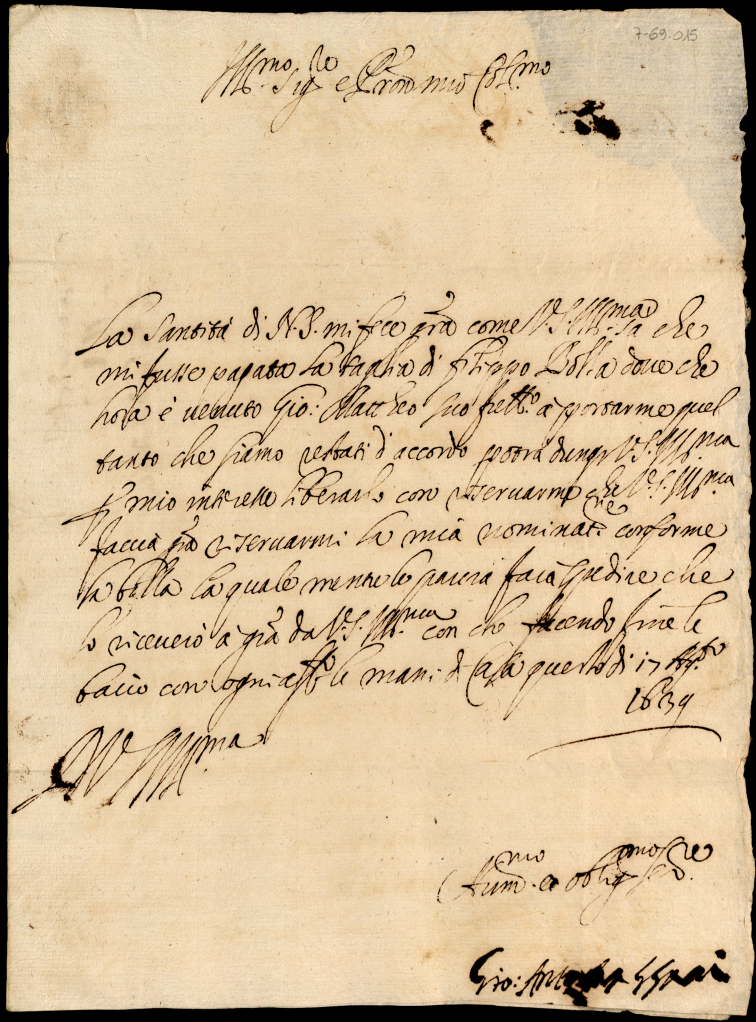 7-69.015
Ill.mo Sig.re e Pron mio Col.mo
La Santità di N.S. mi fece grã come V.S. Ill.ma sa che
mi fusse pagata la taglia di filippo Dolla doue che
hora è uenuto Gio: Mattheo suo frĕllo à portarme quel
tanto che siamo restati d'accordo potrà dunq V.S. Ill.ma
p mio interesse liberarlo con riseruarme che V.S. Ill.ma
faccia grã riseruarmi la mia nominat.ne conforme
la bolla la quale mentre le
lo riceuerò à grã da V.S. Ill.ma con che facendo fine le
bacio con ogni aff.o le mani di Casa questo di 17 Ag.to
1639
D V.S. Ill.ma
Hum.mo et oblig.mo Ser.re
Gio: